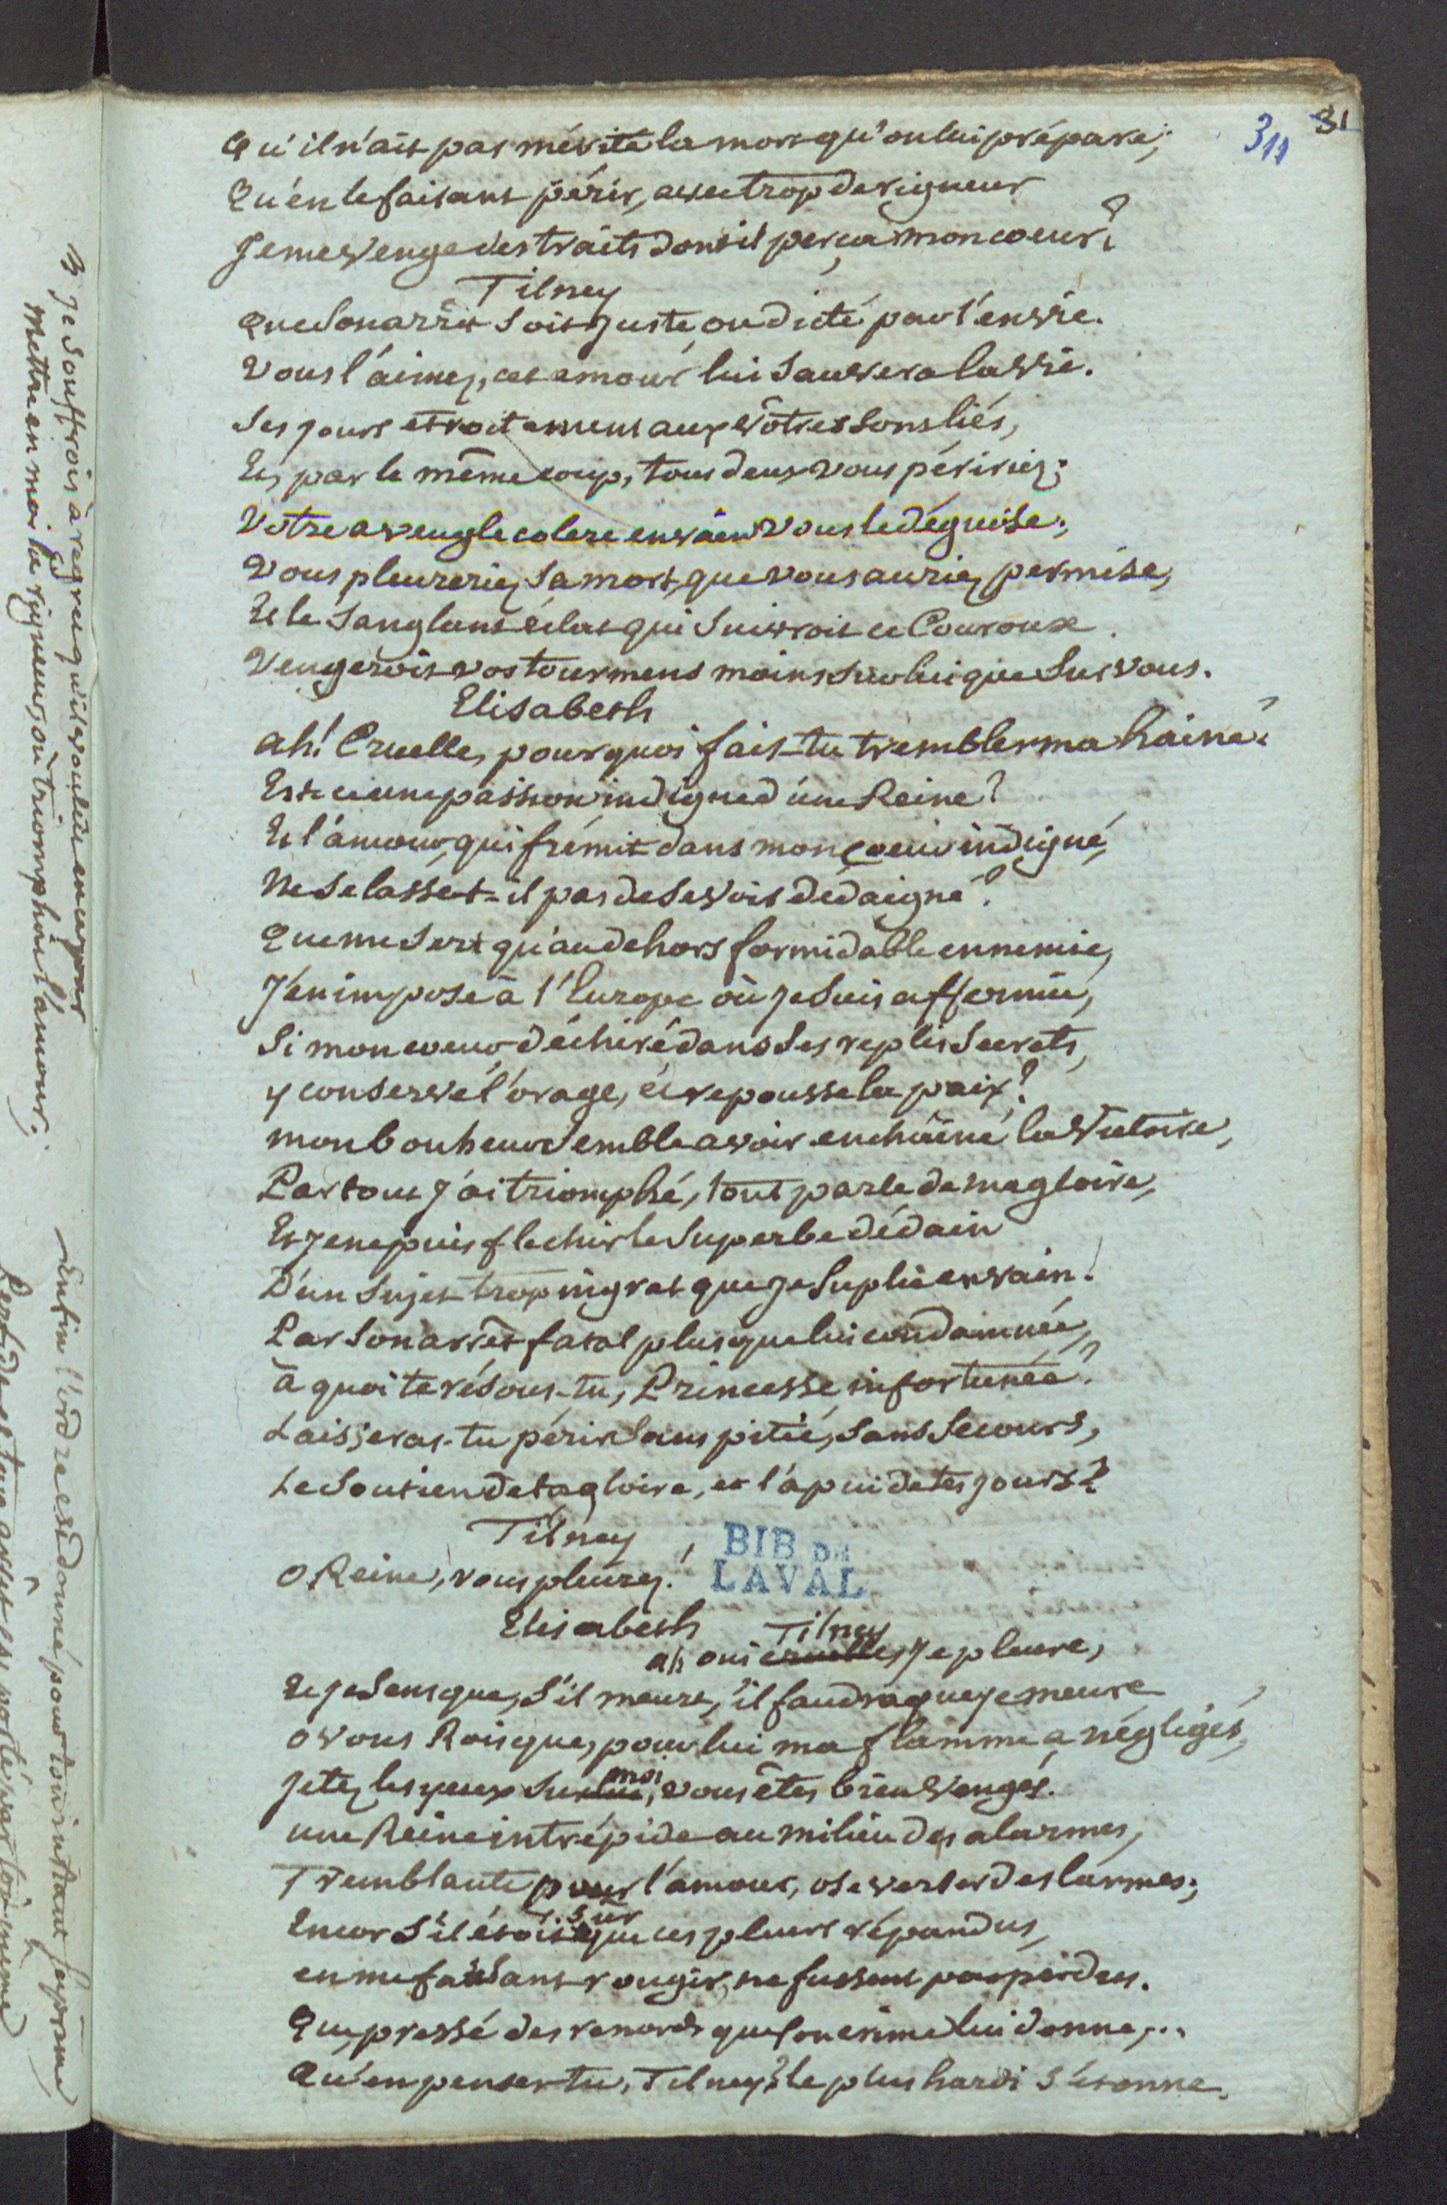 31
311
Qu'il n'ait pas mérité la mort qu'on lui prépare;
Qu'en le faisant périr, avec trop de rigueur
Je me venge des traits dont il perça mon coeur?
Tilney
Que son arrêt soit juste, ou dicté par l'envie.
Vous l'aimez, cet amour lui sauvera la vie.
Ses jours etroitement aux vôtres sont liés,
Et, par le même coup, tous deux vous péririez;
Votre aveugle colere envain vous le déguise;
Vous pleureriez sa mort, que vous auriez permise,
Et le sanglant éclat qui suivroit ce Couroux
Vengeroit vos tourmens moins sur lui que sur vous.
Elisabeth
ah! Cruelle, pourquoi fais-tu trembler ma haine?
Est-ce une passion indigne d'une Reine?
Et l'amour, qui frémit dans mon coeur indigné,
Ne se lasse t-il pas de se voir dédaigné?
Que me sert qu'au dehors formidable ennemie,
J'en impose à l'Europe où je suis affermie,
Si mon coeur déchiré dans ses replis secrets,
y conserve l'orage, et repousse la paix?
mon bonheur semble avoir enchaîné la Victoire,
Partout j'ai triomphé, tout parle de ma gloire,
Et je ne puis flechir le superbe dédain
D'un sujet trop ingrat que je suplie en vain!
Par son arrêt fatal plus que lui condamnée,
à quoi te résous-tu, Princesse infortunée?
Laisseras-tu périr sans pitié, sans secours,
Le soutien de ta gloire, et l'apui de tes jours?
Tilney
O Reine, vous pleurez!
BIB DE
LAVAL
Elisabeth
Tilney
ah oui cruelle, je pleure,
Et je sens que, s'il meurt, il faudra que je meure
O vous Rois que, pour lui ma flamme a négligés,
moi
Jetez les yeux sur lui, vous êtes bien vengés.
une Reine intrépide au milieu des alarmes,
Tremblante pour l'amour, ose verser des larmes;
sûr
Encor s'il étoit que ces pleurs répandus,
en me faisant rougir, ne fussent pas perdus.
Que, pressé des remords que son crime lui donne,...
Qu'en penses-tu, Tilney? le plus hardi s'étonne.
Je souffrois à regret qu'il voulut en
Mettre en moi la rigueur, où triomphoit l'amour.
Enfin l'ordre est donné pour